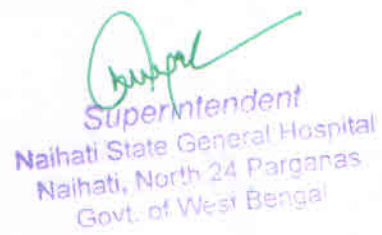 Superintendent
Naihati State General Hospital
Naihati, North 24 Parganas
Govt. of West Bengal